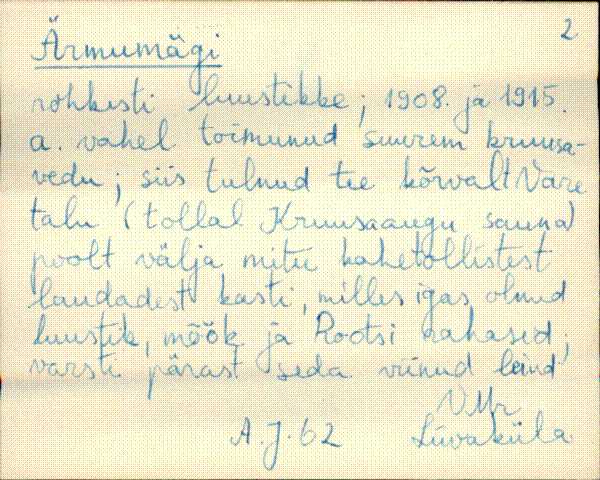 2
Ärmumägi
rohkesti luustikke; 1908. ja 1915.
a. vahel toimunud suurem kruusa-
vedu; siis tulnud tee kõrvalt Vare
talu (tollal Kruusaaugu sauna)
poolt välja mitu kahetollistest
laudadest kasti, milles igas olnud
luustik, mõõk ja Rootsi rahasid;
varsti pärast seda viinud leind
VMr
A.J. 62 Liivaküla